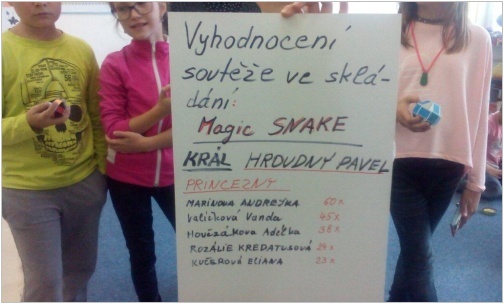 Vyhodnocení
soutěže ve sklá-
dání:
Magic SNAKE
KRÁL HROUDNÝ PAVEL
PRINCEZNY
MARINOVA ANDREJKA 60x
Valíčková Vanda 45x
Hovězákova Adélka 38x
ROZÁLIE KREDATUSOVÁ 24x
KUČEROVÁ ELIANA 23x